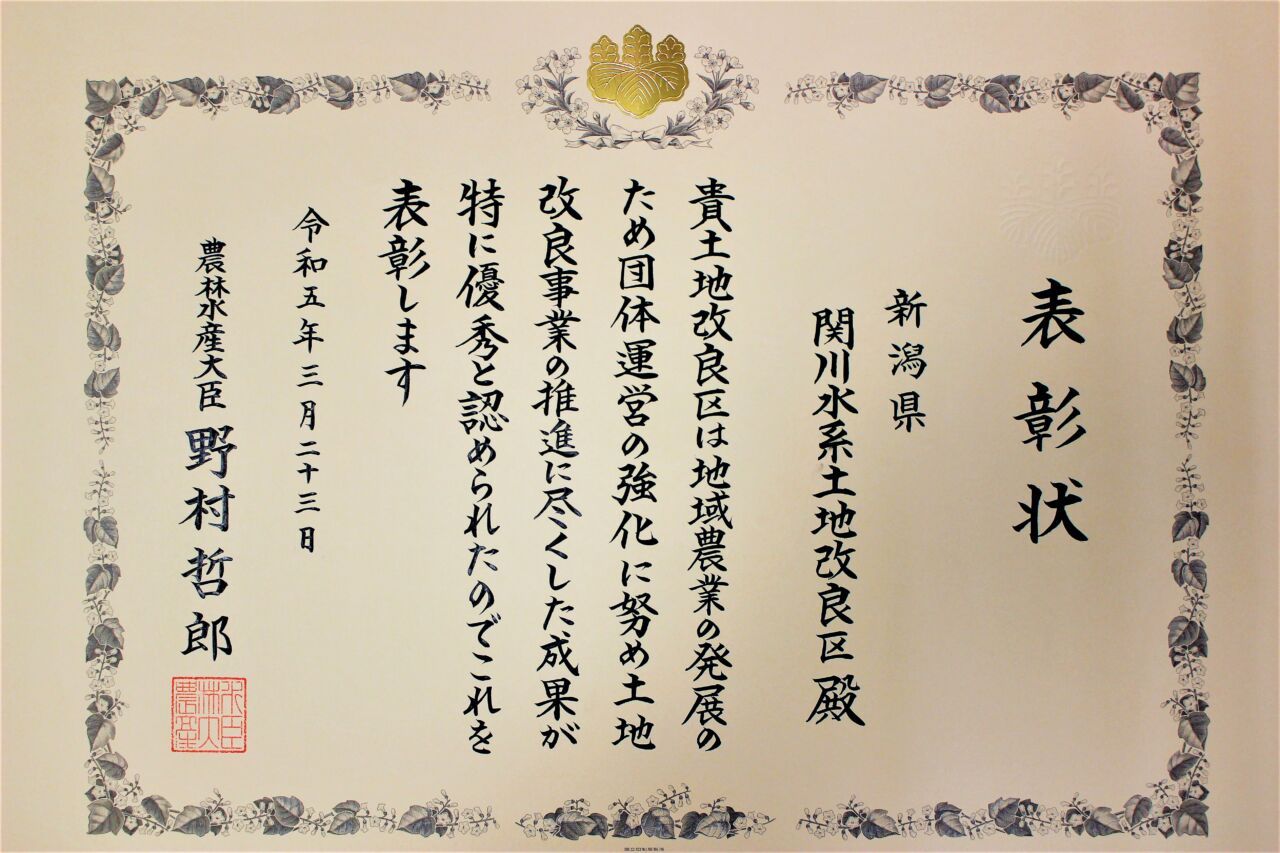 表彰状
新潟県
関川水系土地改良区殿
貴土地改良区は地域農業の発展の
ため団体運営の強化に努め土地
改良事業の推進に尽くした成果が
特に優秀と認められたのでこれを
表彰します
令和五年三月二十三日
農林水産大臣 野村哲郎